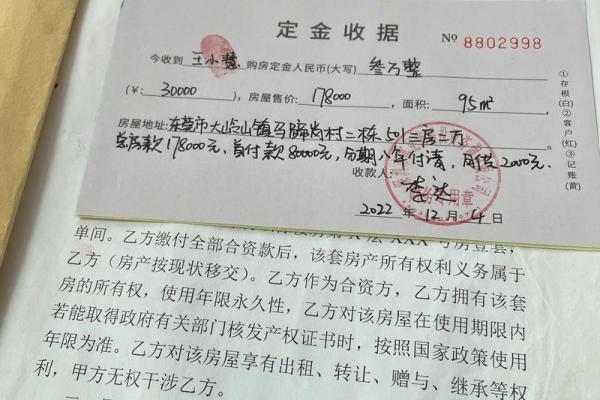 定金收据
№ 8802998
今收到 王小慧 购房定金人民币(大写) 叁万整
(¥: 30000 ), 房屋售价: 178000 , 面积: 95m²
房屋地址: 东莞市大岭山镇马蹄岗村二栋501三房二厅
总房款178000元, 首付款80000元, 分期八年付清, 月供2000元.
收款人:
2022 年 12 月 4 日
①存根(白)②客户(红)③记账(黄)
财务专用章
单间。乙方缴付全部合资款后，该套房产所有权利义务属于
乙方（房产按现状移交）。乙方作为合资方，乙方拥有该套
房的所有权，使用年限永久性，乙方对该房屋在使用期限内
若能取得政府有关部门核发产权证书时，按照国家政策使用
年限为准。乙方对该房屋享有出租、转让、赠与、继承等权
利，甲方无权干涉乙方。